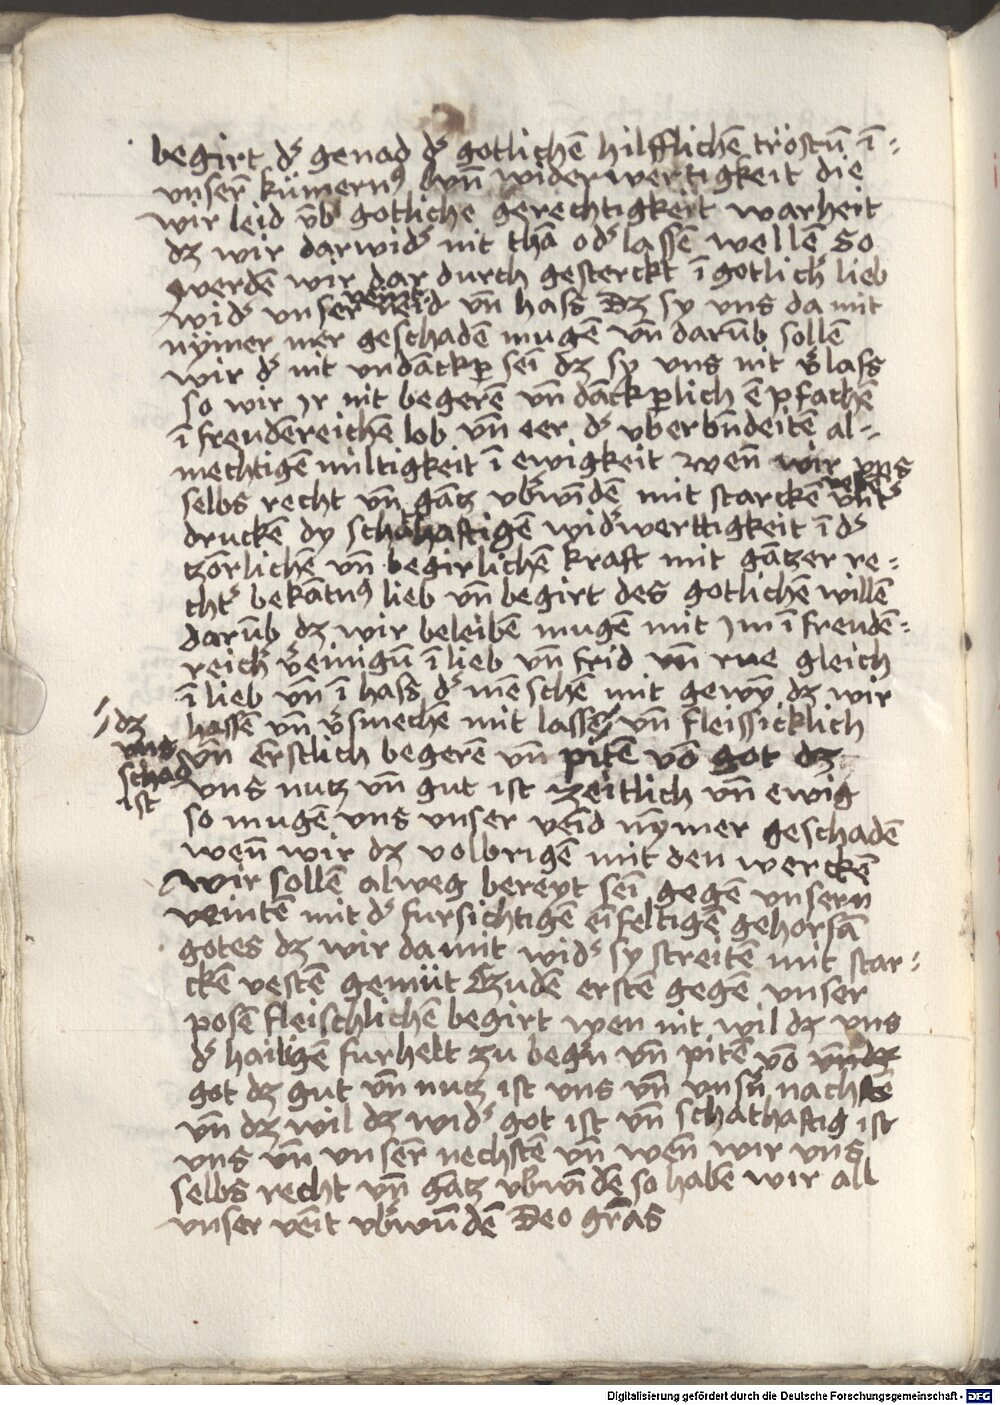 begirt dˢ genad dˢ gotlichē hilfflichē tröstū ī-
vnser̄ kümernꝰ vn̄ widerwertigkeit die
wir leid v̄b gotliche gerechtigkeit warheit
dz wir darwidˢ nit thā odˢ lassē wellē So
werdē wir dar durch gesterckt ī gotlichˢ lieb
widˢ vnser neid vn̄ hass Dz sy vns da mit
nÿmer mer geschadē mugē vn̄ darūb sollē
wir dˢ nit vndāckp sei dz sy vns nit vˢlass
so wir ir nit begerē vn̄ dāckplich ēpfachē
ī freudēreichē lob vn̄ eer dˢ vberbn̄deitē al-
mechtigē miltigkeit ī ewigkeit wen̄ wir vns
selbs recht vn̄ gātz vbˢwīdē mit starckē vn̄tˢ
druckē dy schahaftigē widˢwerttigkeit ī dˢ
zörlichē vn̄ begirlichē kraft mit gātzer re-
chtˢ bekātnꝰ lieb vn̄ begirt des gotlichē willē
darūb dz wir beleibē mugē mit im ī freudē-
reichˢ vˢeinigū ī lieb vn̄ frid vn̄ rue gleich
ī lieb vn̄ ī hass dˢ mēschē mit gewȳ dz wir
hassē vn̄ vˢsmechē mit lassē vn̄ fleissicklich
dz
vns
schad
ist
vn̄ erstlich begerē vn̄ pitē vō got dz
vns nutz vn̄ gut ist zeitlich vn̄ ewig
so mugē vns vnser veīd nȳmer geschadē
wen̄ wir dz volbrigē mit den werckē
wir sollē alweg bereyt sei gegē vnsern
veintē mit dˢ fursichtigē eīfeltigē gehorsā
gotes dz wir da mit widˢ sy streitē mit star-
ckē vestē gemüt Zudē erstē gegē vnser
posē fleischlichē begirt wen nit wil dz vns
dˢ hailigē furhelt zu begˢn vn̄ pitē vō vn̄ dz
got dz gut vn̄ nutz ist vns vn̄ vnsˢn̄ nachstē
vn̄ dz wil dz widˢ got ist vn̄ schathaftig ist
vns vn̄ vnser̄ nechstē vn̄ wen̄ wir vns
selbs recht vn̄ gātz vbˢwīdē so habē wir all
vnser veīt vbˢwūdē Deo gr̄as
Digitalisierung gefördert durch die Deutsche Forschungsgemeinschaft - DFG